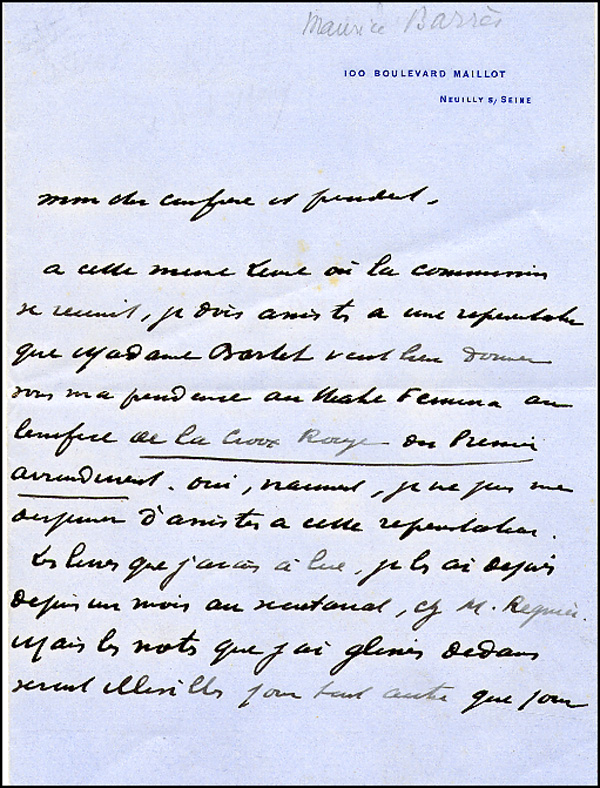 Maurice Barrès
100 BOULEVARD MAILLOT
NEUILLY S/ SEINE
mon cher confrère et président,
a cette meme heure où la commission
se reunit, je dois assister a une representation
que Madame Bartet veut bien donner
sous ma presidence au theatre Femina au
benefice de la Croix Rouge du Premier
arrondissement. oui, vraiment, je ne puis me
dispenser d'assister a cette representation.
Les livres que j'avais à lire, je les ai deposés
depuis un mois au secretariat, chez M. Regnier.
Mais les notes que j'ai glissées dedans
seront illisibles pour tout autre que pour